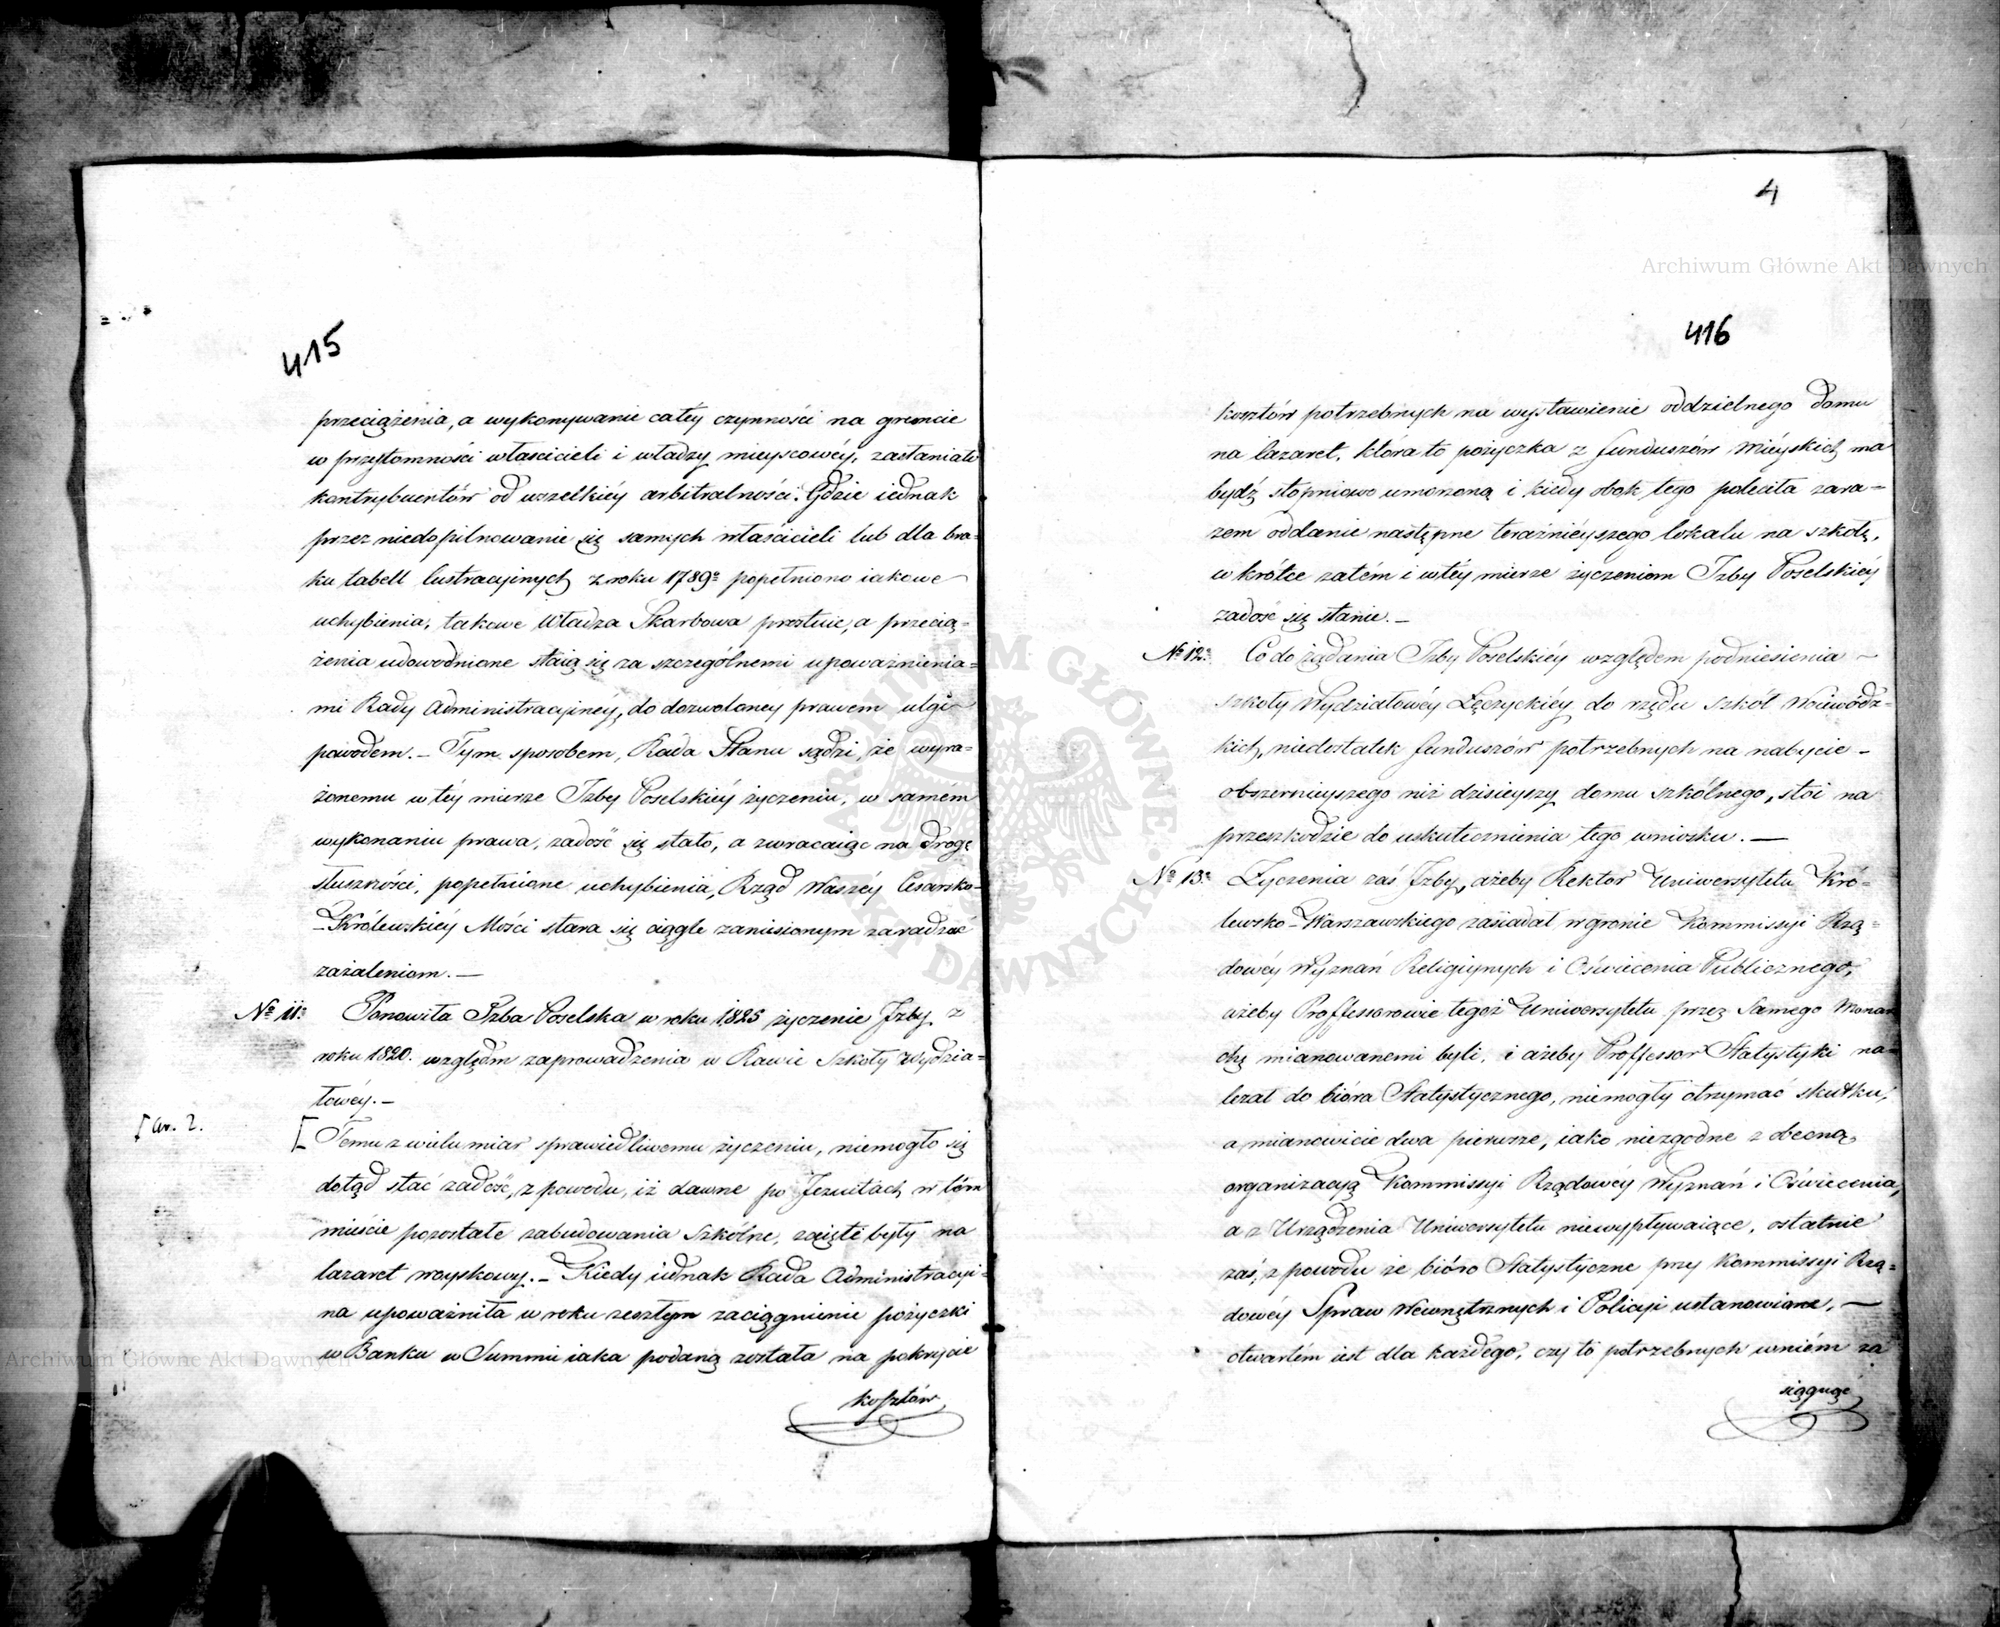 415
przeciążenia, a wykonywanie całey czynności na gruncie
w przytomności właścicieli i władzy mieyscowéy, zasłaniało
kontrybuentów od wszelkiéy arbitralności. Gdzie iednak
przez niedopilnowanie się samych właścicieli lub dla bra-
ku tabell lustracyinych z roku 1789º popełniono iakowe
uchybienia, takowe Władza Skarbowa prostuie, a przecią-
żenia udowodnione staią się za szczególnemi upoważnienia-
mi Rady Administracyinéy, do dozwoloney prawem ulgi
powodem. – Tym sposobem, Rada Stanu sądzi, że wyra-
żonemu w téy mierze Izby Poselskiéy życzeniu, w samém
wykonaniu prawa, zadość się stało, a zwracaiąc na drogę
słuszności, popełnione uchybienia, Rząd Waszéy Cesarsko-
-Królewskiéy Mości stara się ciągle zaniesionym zaradzać
zażaleniom. —
Nº 11º Ponowiła Izba Poselska w roku 1825 życzenie Izby z
roku 1820. względem zaprowadzenia w Rawie Szkoły Wydzia-
łowéy. –
[ 2. [ Temu z wielu miar sprawiedliwemu życzeniu, niemogło się
dotąd stać zadość, z powodu, iż dawne po Jezuitach w tém
mieście pozostałe zabudowania Szkólne, zaięte były na
lazaret woyskowy. – Kiedy iednak Rada Administracyi-
na upoważniła w roku zeszłym zaciągnienie pożyczki
w Banku w Summie iaka podaną została na pokrycie
kosztów
4
416
kosztów potrzebnych na wystawienie oddzielnego domu
na lazaret, która to pożyczka z funduszów Mieyskich ma
bydź stopniowo umorzoną i kiedy obok tego poleciła zara-
zem oddanie następne teraźnieyszego lokalu na szkołę,
w krótce zatém i w téy mierze życzeniom Izby Poselskiéy
zadość się stanie. –
Nº 12º Co do żądania Izby Poselskiéy względem podniesienia –
szkoły Wydziałowéy Łęczyckiéy do rzędu szkół Woiewódz-
kich, niedostatek funduszów potrzebnych na nabycie –
obszernieyszego niż dzisieyszy domu szkólnego, stoi na
przeszkodzie do uskutecznienia tego wniosku. —
Nº 13º Życzenia zaś Izby, ażeby Rektor Uniwersytetu Kró-
lewsko-Warszawskiego zasiadał w gronie Kommissyi Rzą-
dowéy Wyznań Religiynych i Oświecenia Publicznego,
ażeby Proffessorowie tegoż Uniwersytetu przez Samego Monar
chę mianowanemi byli, i ażeby Proffessor Statystyki na-
leżał do bióra Statystycznego, niemogły otrzymać skutku,
a mianowicie dwa pierwsze, iako niezgodne z obecną
organizacyą Kommissyi Rządowéy Wyznań i Oświecenia,
a z Urządzenia Uniwersytetu niewypływaiące, ostatnie
zaś, z powodu że bióro Statystyczne przy Kommissyi Rzą-
dowéy Spraw Wewnętrznych i Policyi ustanowione, —
otwartém iest dla każdego, czy to potrzebnych w niém za
siągnąć
Archiwum Główne Akt Dawnych
Archiwum Główne Akt Dawnych
ARCHIWUM GŁÓWNE AKT DAWNYCH